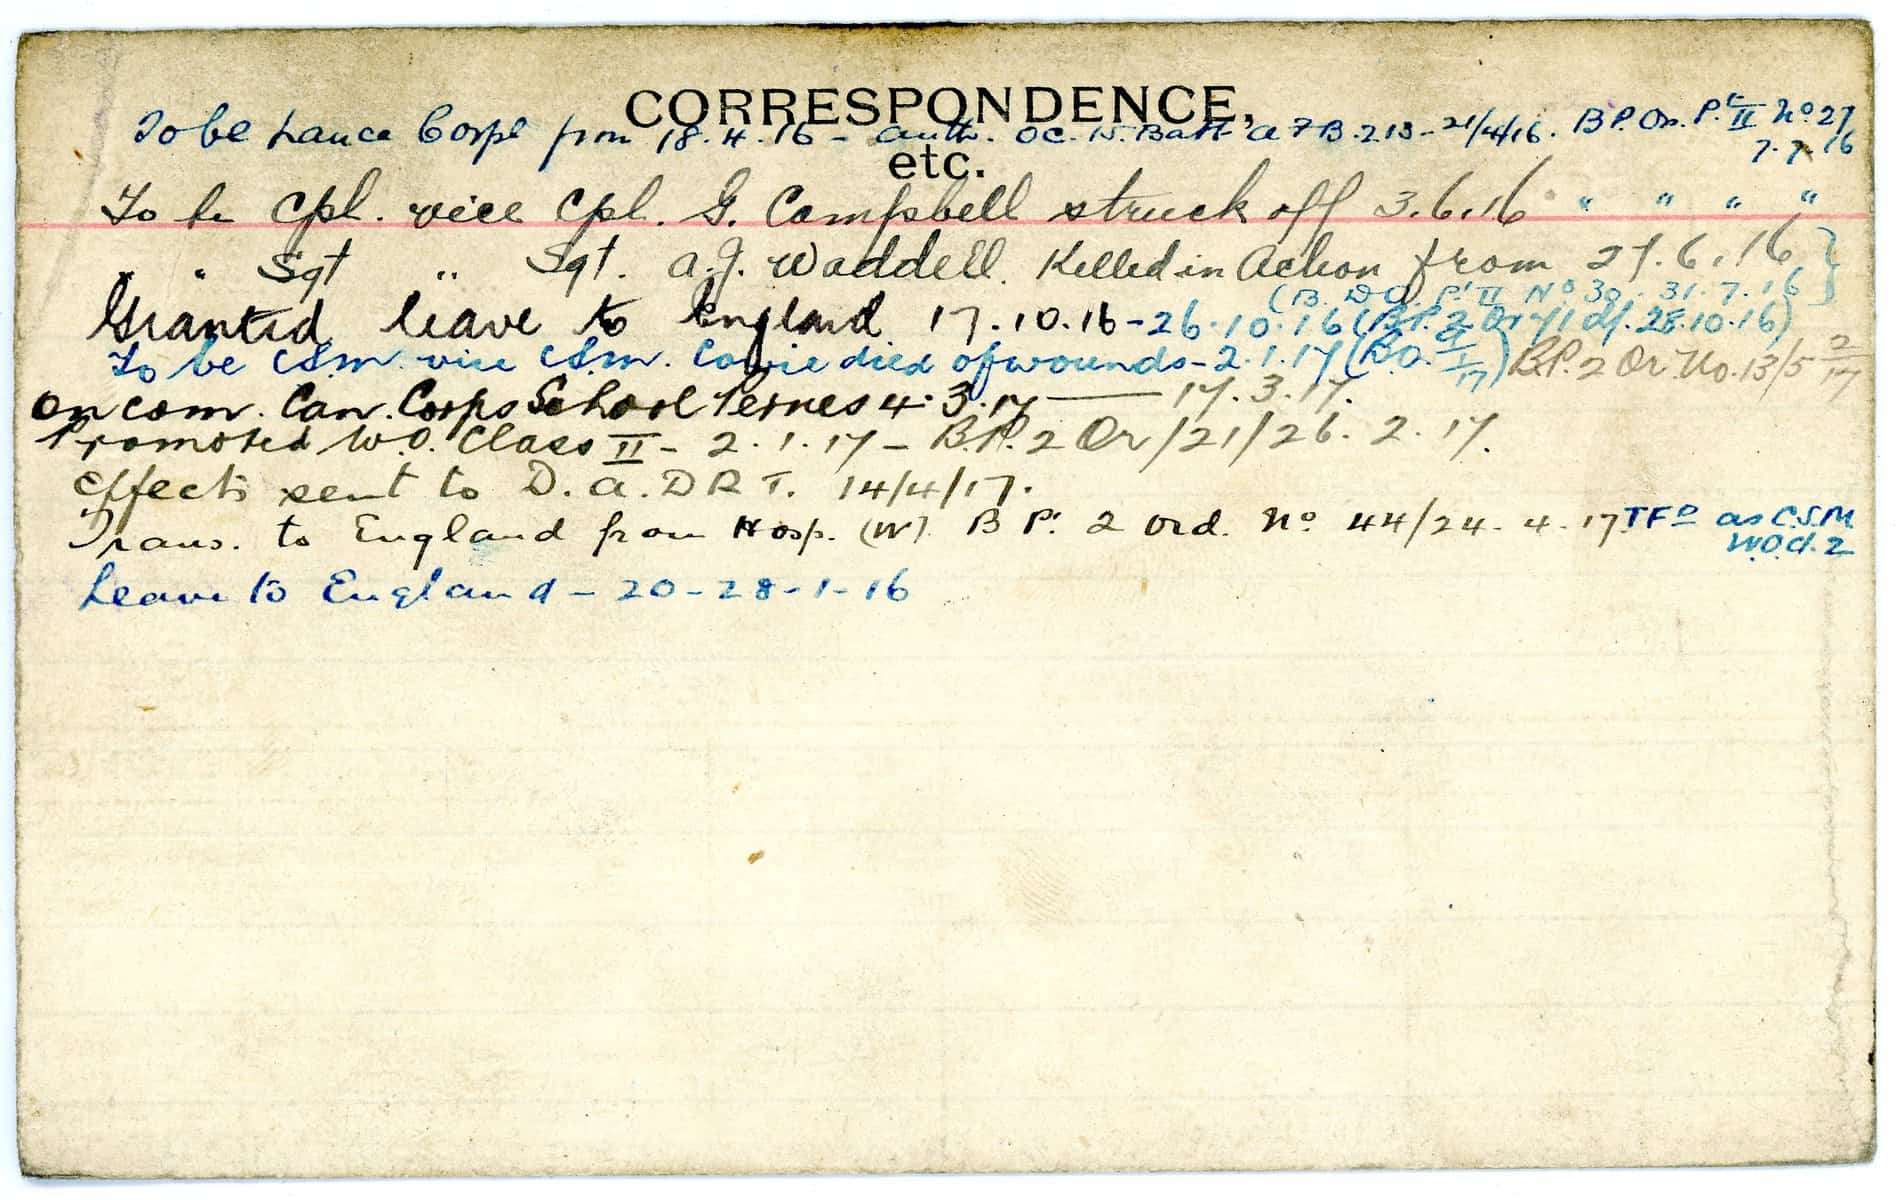 CORRESPONDENCE,
To be Lance Corpl from 18.4.16 - auth. OC. 15. Batt A F B.213 - 21/4/16. B P. Or. Pt II No 27
7.7.16
etc.
To be Cpl. vice Cpl. G. Campbell struck off 3.6.16 " " " "
" " Sgt " Sgt. A.J. Waddell. Killed in Action from 27.6.16
(B. D O. Pt II No 30. 31.7.16)
Granted leave to England 17.10.16 - 26.10.16 (B.P. 2 Or 71 d/. 28.10.16)
To be C.S.M. vice C.S.M. Cowie died of wounds - 2.1.17 (B.O. 17) B.P. 2 Or. No. 13/5 2/17
On com. Can. Corps School Pernes 4.3.17 — 17.3.17.
Promoted W.O. Class II - 2.1.17 - B.P. 2 Or/21/26.2.17.
Effects sent to D.A.D R T. 14/4/17.
Trans. to England from Hosp. (W). B Pt 2 Ord. No 44/24-4-17. TFD as C.S.M.
W.O.cl.2
Leave to England - 20-28-1-16